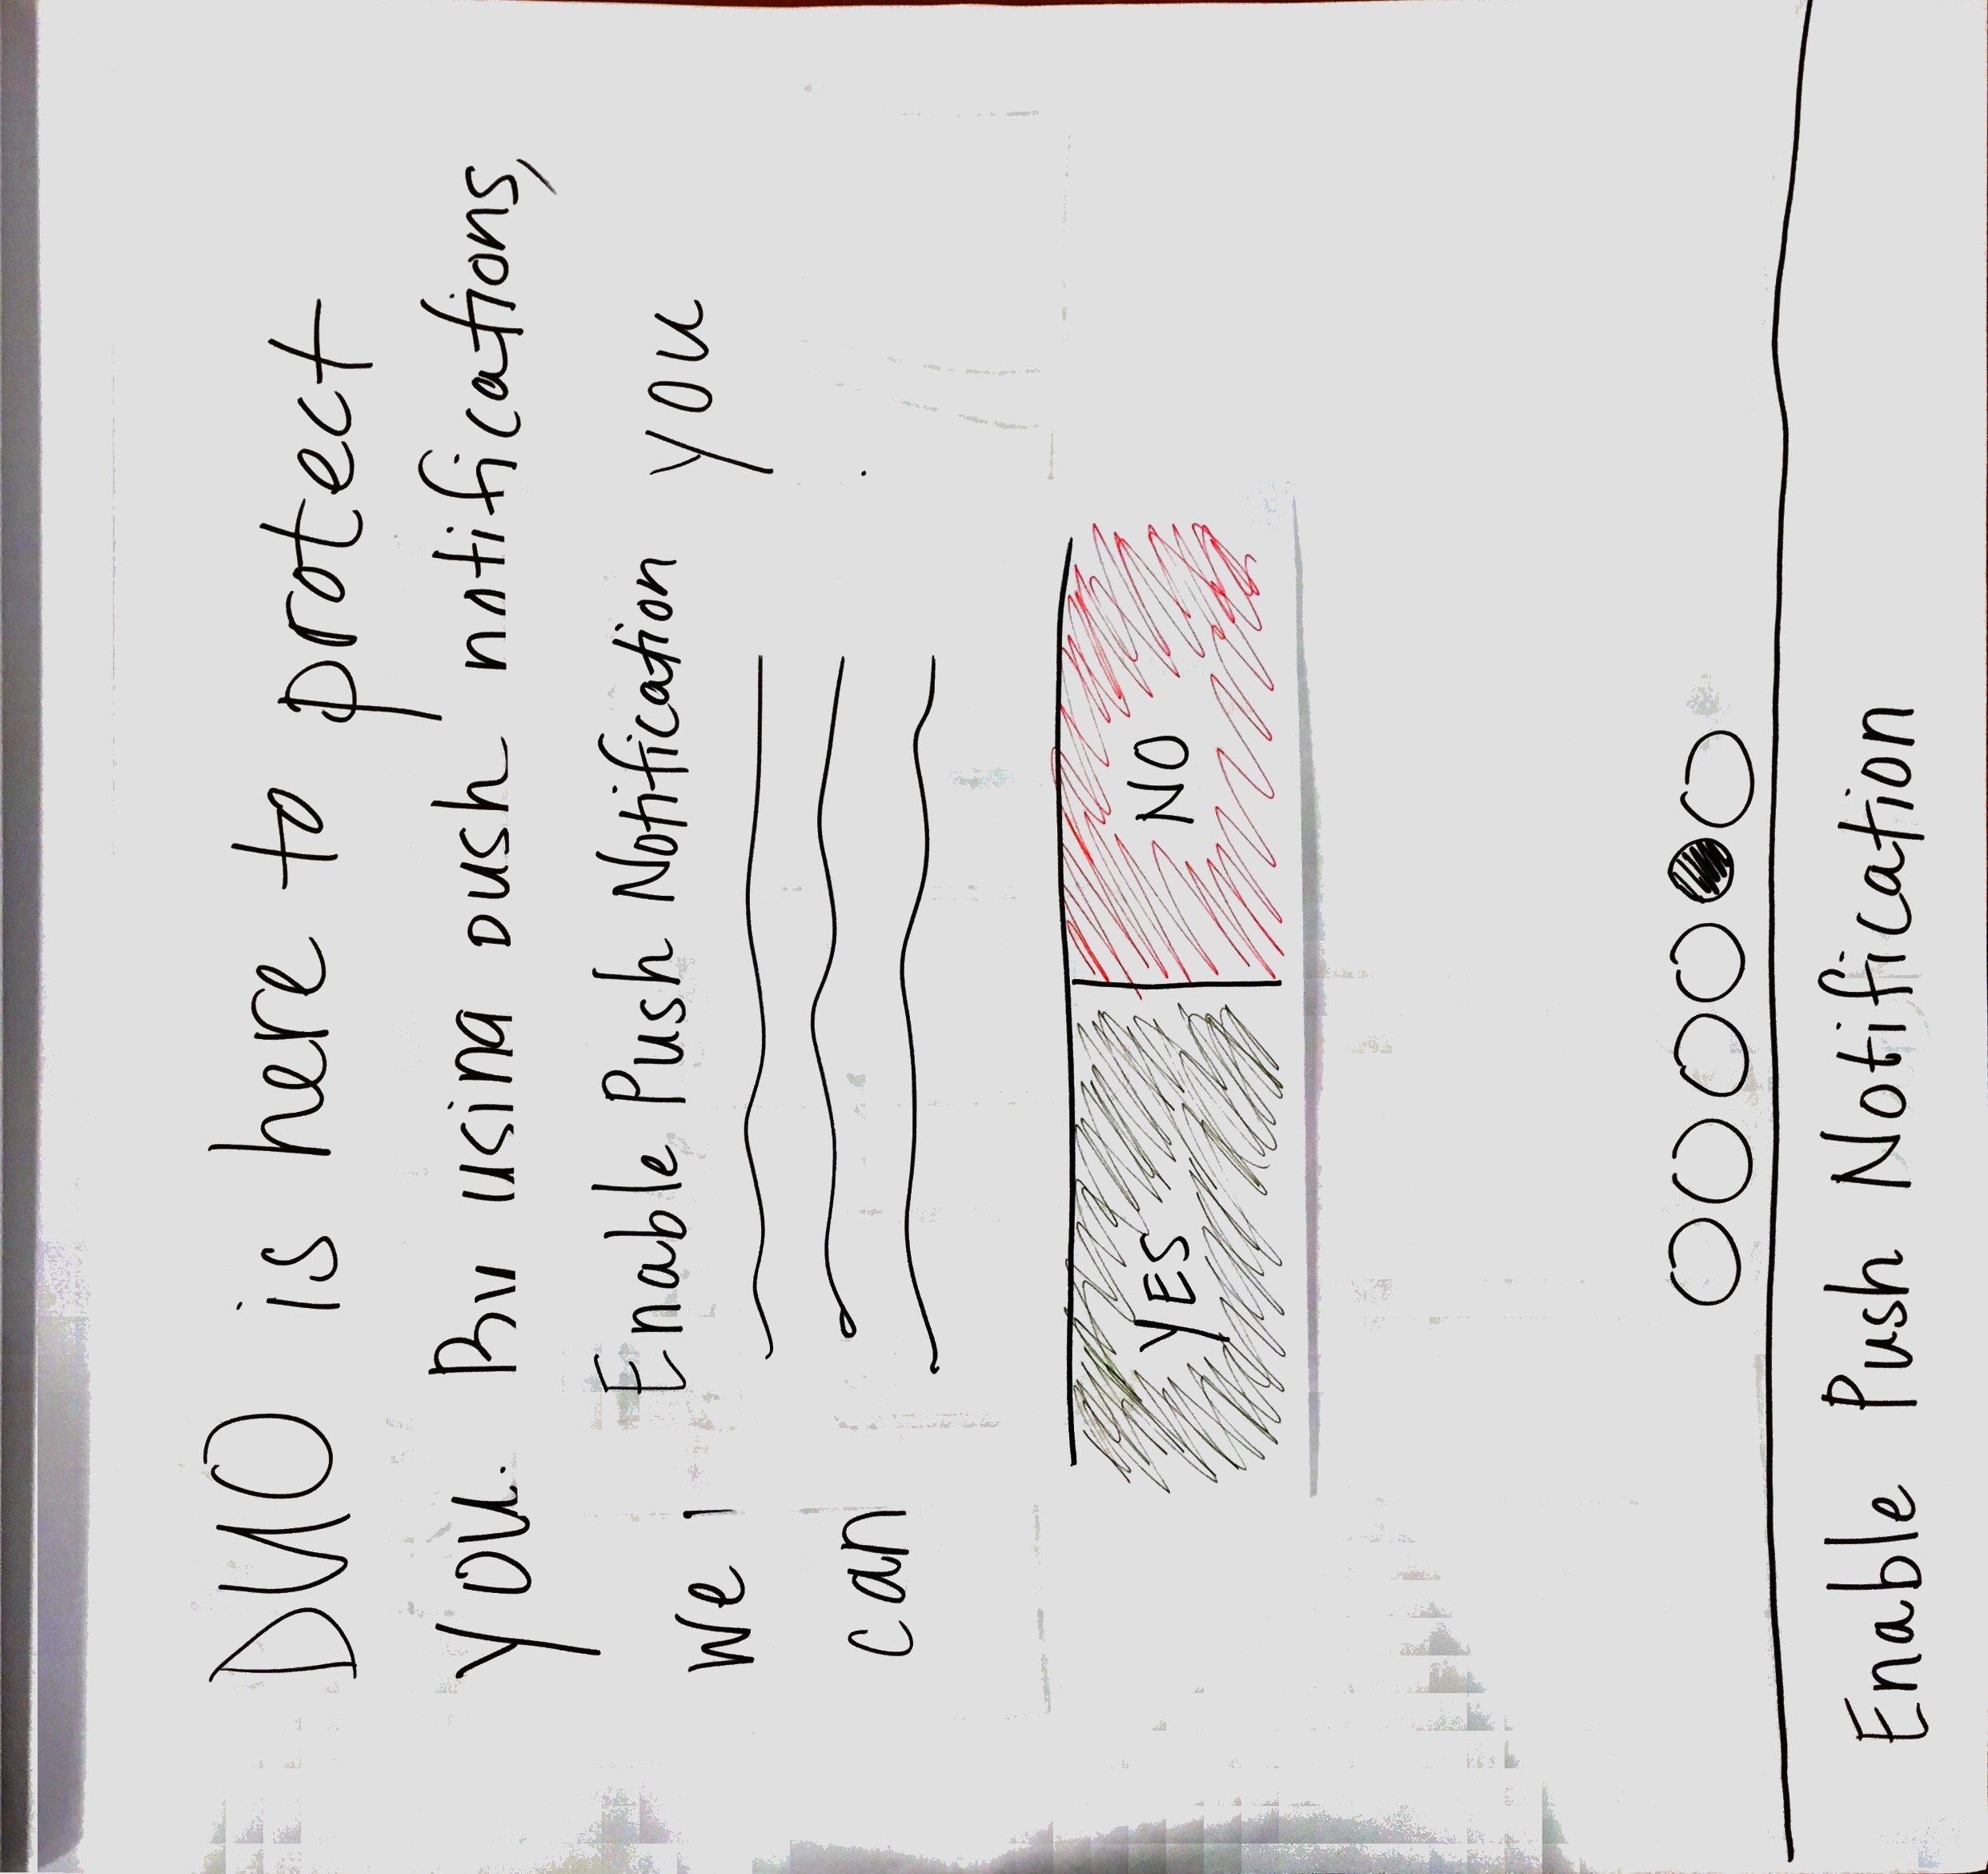 DUO is here to protect
you. By using push notifications,
Enable Push Notification
we you
can
YES NO
Enable Push Notification